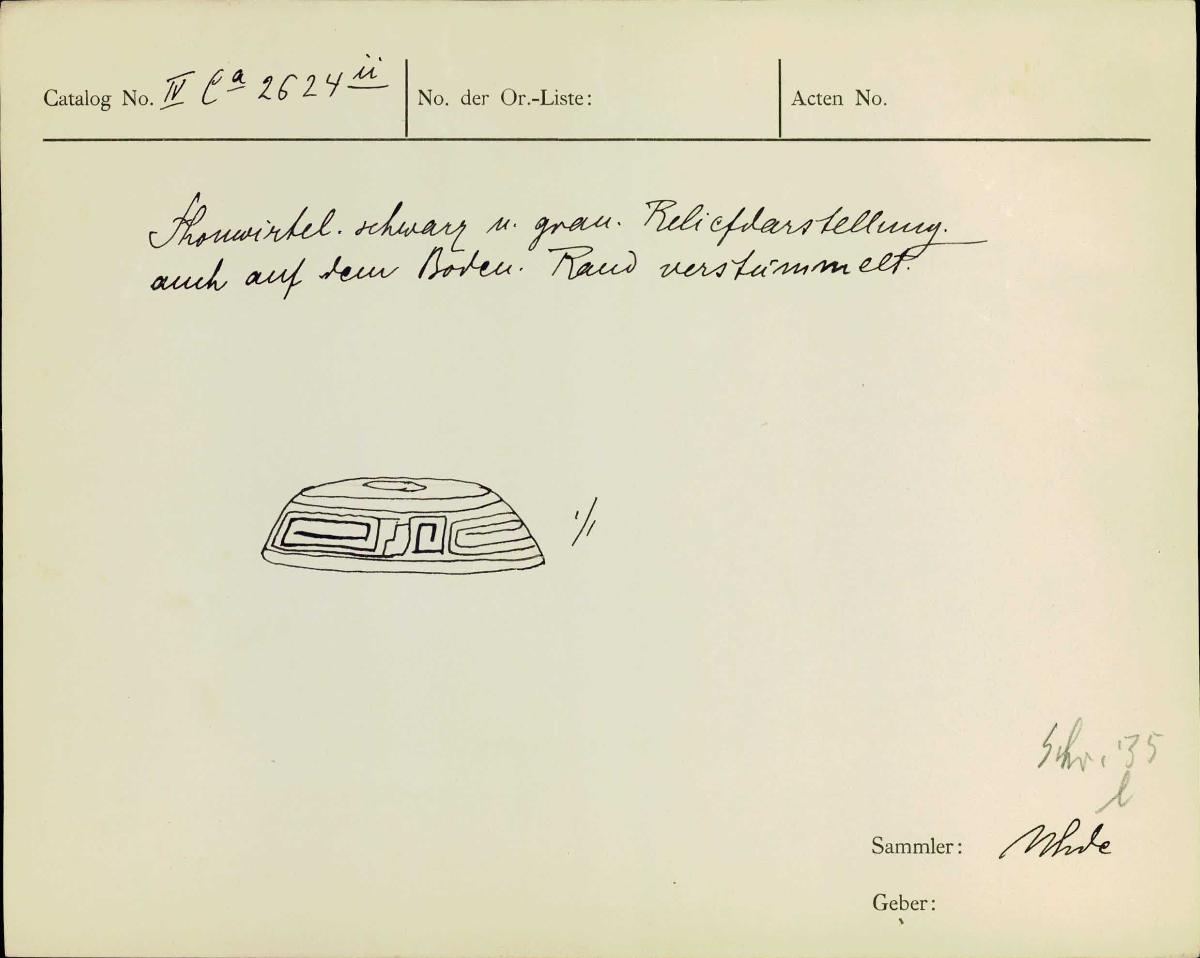 Catalog No. IV Ca 2624 ii
No. der Or.-Liste:
Acten No.
Thonwirtel. schwarz u. grau. Reliefdarstellung.
auch auf dem Boden. Rand verstümmelt.
1/1
Schr. 35
l
Sammler: Uhde
Geber: